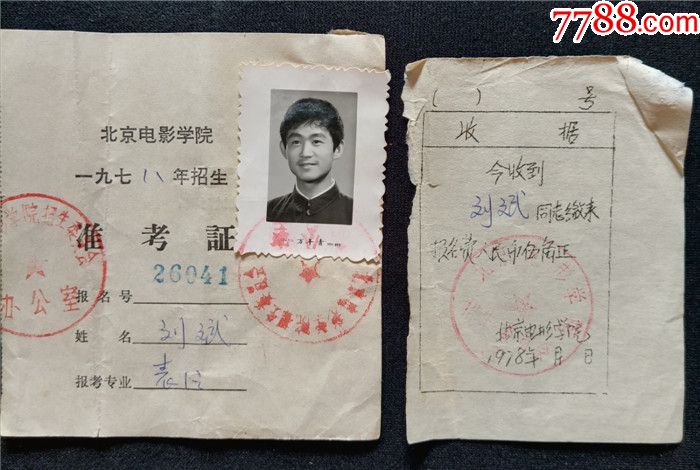 7788.com
中国收藏热线
北京电影学院
一九七八年招生
准考证
26041
报名号
姓名 刘斌
报考专业 表演
学院招生委员会
办公室
( ) 号
收据
今收到
刘斌 同志缴来
报名费人民币伍角正
北京电影学院
1978年 月 日